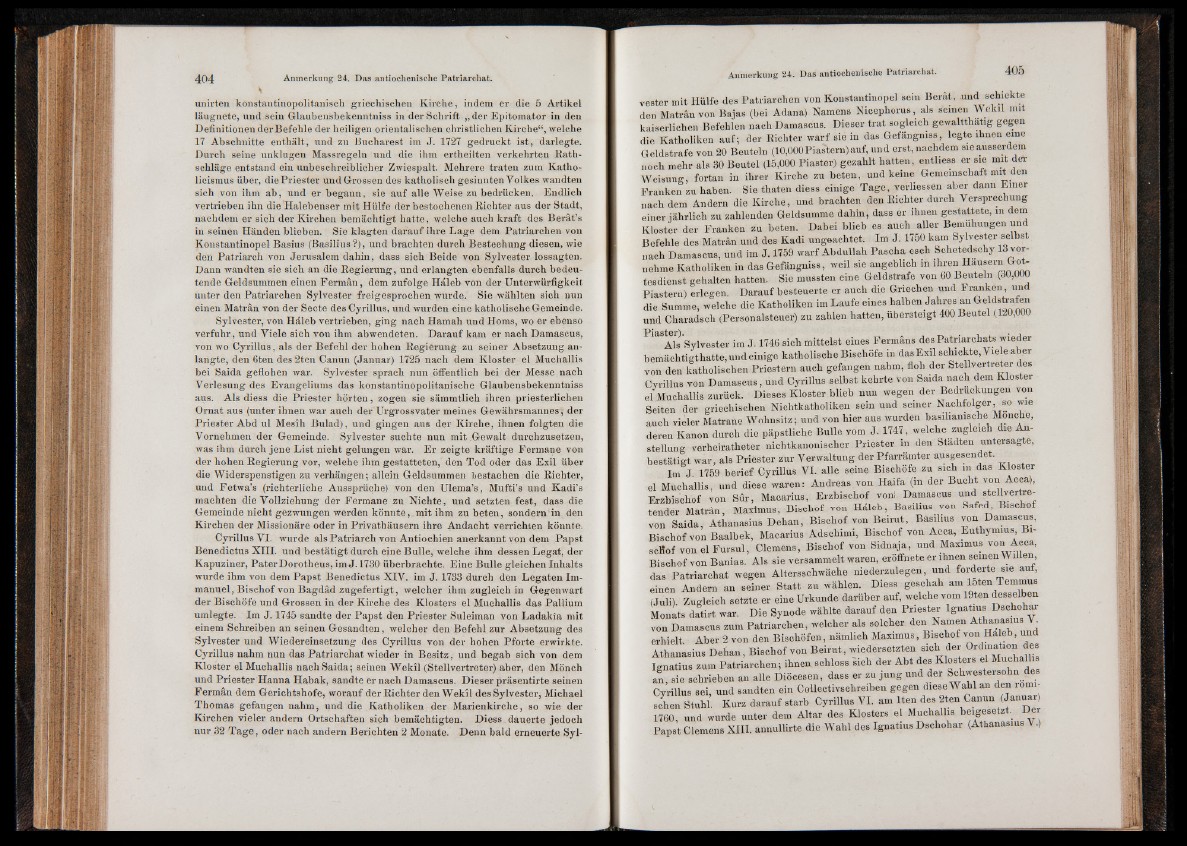 404 Anmerkung 24. Das antiochenische Patriarchat.
unirten konstantinopolitanisch griechischen Kirche, indem er die 5 Artikel
läugnete, und sein Glaubensbekenntniss in der Schrift „der Epitomator in den
Definitionen der Befehle der heiligen orientalischen christlichen Kirche“, welche
17 Abschnitte enthält, und zu Bucharest im J. 1727 gedruckt ist, darlegte.
Durch seine unklugen Massregeln und die ihm ertheilten verkehrten Rath-
schläge entstand ein unbeschreiblicher Zwiespalt. Mehrere traten zum Katho-
licismus über, die Priester und Grossen des katholisch gesinnten Volkes wandten
sich von ihm ab, und er begann, sie auf alle Weise zu bedrücken. Endlich
vertrieben ihn die Halebenser mit Hülfe der bestochenen Richter aus der Stadt,
nachdem er sich der Kirchen bemächtigt hatte, welche auch kraft des Berât's
in seinen Händen blieben. Sie klagten darauf ihre Lage dem Patriarchen von
Konstantinopel Basius (Basilius?), und brachten durch Bestechung diesen, wie
den Patriarch von Jerusalem dahin, dass sich Beide von Sylvester lossagten.
Dann wandten sie sich an die Regierung, und erlangten ebenfalls durch bedeu-
tende Geldsummen einen Fermân, dem zufolge Háleb von der Unterwürfigkeit
unter den Patriarchen Sylvester freigesprochen wurde. Sie wählten sich nun
einen Matrân von der Secte des Cyrillus, und wurden eine katholische Gemeinde.
Sylvester, von Háleb vertrieben, ging nach Hamah und Homs, wo er ebenso
verfuhr, und Viele sich von ihm abwendeten. Darauf kam er nach Damascus,
von wo Cyrillus, als der Befehl der hohen Regierung zu seiner Absetzung an-
langte, den 6ten des 2ten Canun (Januar) 1725 nach dem Kloster el Muchallis
bei Saida geflohen war. Sylvester sprach nun öffentlich bei der Messe nach
Verlesung des Evangeliums das konstantinopolitanische Glaubensbekenntniss
aus. Als diess die Priester hörten, zogen sie sämmtlich ihren priesterlichen
Ornat aus (unter ihnen war auch der Urgrossvater meines Gewährsmannes, der
Priester Abd ul Mesîh Bulad), und gingen aus der Kirche, ihnen folgten die
Vornehmen der Gemeinde. Sylvester suchte nun mit Gewalt durchzusetzen,
was ihm durch jene List nicht gelungen war. Er zeigte kräftige Fermane von
der hohen Regierung vor, welche ihm gestatteten, den Tod oder das Exil über
die Widerspenstigen zu verhängen; allein Geldsummen bestachen die Richter,
und Fetwa's (richterliche Aussprüche) von den Ulema's, Mufti's und Kadi's
machten die Vollziehung der Fermane zu Nichte, und setzten fest, dass die
Gemeinde nicht gezwungen werden könnte, mit ihm zu beten, sondern in den
Kirchen der Missionäre oder in Privathäusern ihre Andacht verrichten könnte.
Cyrillus VI. wurde als Patriarch von Antiochien anerkannt von dem Papst
Benedictus XIII. und bestätigt durch eine Bulle, welche ihm dessen Legat, der
Kapuziner, Pater Dorotheus, im J. 1730 überbrachte. Eine Bulle gleichen Inhalts
wurde ihm von dem Papst Benedictus XIV. im J. 1733 durch den Legaten Im-
manuel, Bischof von Bagdâd zugefertigt, welcher ihm zugleich in Gegenwart
der Bischöfe und Grossen in der Kirche des Klosters el Muchallis das Pallium
umlegte. Im J. 1745 sandte der Papst den Priester Suleiman von Ladakia mit
einem Schreiben an seinen Gesandten, welcher den Befehl zur Absetzung des
Sylvester und Wiedereinsetzung des Cyrillus von der hohen Pforte erwirkte.
Cyrillus nahm nun das Patriarchat wieder in Besitz, und begab sich von dem
Kloster el Muchallis nach Saida; seinen Wekil (Stellvertreter) aber, den Mönch
und Priester Hanna Habak, sandte er nach Damascus. Dieser präsentirte seinen
Fermân dem Gerichtshofe, worauf der Richter den Wekil des Sylvester, Michael
Thomas gefangen nahm, und die Katholiken der Marienkirche, so wie der
Kirchen vieler andern Ortschaften sich bemächtigten. Diess dauerte jedoch
nur 32 Tage, oder nach andern Berichten 2 Monate. Denn bald erneuerte Syl-
Anmerkung 24. Das antiochenische Patriarchat. 405
vester mit Hülfe des Patriarchen von Konstantinopel sein Berât, und schickte
den Matrân von Bajas (bei Adana) Namens Nicephorus, als seinen Wekil mit
kaiserlichen Befehlen nach Damascus. Dieser trat sogleich gewaltthätig gegen
die Katholiken auf; der Richter warf sie in das Gefängniss, legte ihnen eine
Geldstrafe von 20 Beuteln (10,000 Piastern) auf, und erst, nachdem sie ausserdem
noch mehr als 30 Beutel (15,000 Piaster) gezahlt hatten, entliess er sie mit der
Weisung, fortan in ihrer Kirche zu beten, und keine Gemeinschaft mit den
Franken zu haben. Sie thaten diess einige Tage, verliessen aber dann Einer
nach dem Andern die Kirche, und brachten den Richter durch Versprechung
einer jährlich zu zahlenden Geldsumme dahin, dass er ihnen gestattete, in dem
Kloster der Franken zu beten. Dabei blieb es auch aller Bemühungen und
Befehle des Matrân und des Kadi ungeachtet. Im J. 1750 kam Sylvester selbst
nach Damascus, und im J. 1759 warf Abdullah Pascha esch Schetedschy 13 vor-
nehme Katholiken in das Gefängniss, weil sie angeblich in ihren Häusern Got-
tesdienst gehalten hatten. Sie mussten eine Geldstrafe von 60 Beuteln (30,000
Piastern) erlegen. Darauf besteuerte er auch die Griechen und Franken, und
die Summe, welche die Katholiken im Laufe eines halben Jahres an Geldstrafen
und Charadsch (Personalsteuer) zu zahlen hatten, übersteigt 400 Beutel (120,000
Piaster).
Als Sylvester im J. 1746 sich mittelst eines Fermâns des Patriarchats wieder
bemächtigt hatte, und einige katholische Bischöfe in das Exil schickte, Viele aber
von den katholischen Priestern auch gefangen nahm, floh der Stellvertreter des
Cyrillus von Damascus, und Cyrillus selbst kehrte von Saida nach dem Kloster
el Muchallis zurück. Dieses Kloster blieb nun wegen der Bedrückungen von
Seiten der griechischen Nichtkatholiken sein und seiner Nachfolger, so wie
auch vieler Matrane Wohnsitz; und von hier aus wurden basilianische Mönche,
deren Kanon durch die päpstliche Bulle vom J. 1747, welche zugleich die An-
stellung verheiratheter nichtkanonischer Priester in den Städten untersagte,
bestätigt war, als Priester zur Verwaltung der Pfarrämter ausgesendet.
Im J. 1759 berief Cyrillus VI. alle seine Bischöfe zu sich in das Kloster
el Muchallis, und diese waren: Andreas von Haifa (in der Bucht von Acca),
Erzbischof von Sûr, Macarius, Erzbischof von Damascus und stellvertre-
tender Matrân, Maximus, Bischof von Háleb, Basilius von Safed, Bischof
von Saida, Athanasius Dehan, Bischof von Beirut, Basilius von Damascus,
Bischof von Baalbek, Macarius Adschimi, Bischof von Acca, Euthymius, Bi-
schof von el Fursul, Clemens, Bischof von Sidnaja, und Maximus von Acca,
Bischof von Banias. Als sie versammelt waren, eröffnete er ihnen seinen Willen,
das Patriarchat wegen Altersschwäche niederzulegen, und forderte sie auf,
einen Andern an seiner Statt zu wählen. Diess geschah am 15ten Temmus
(Juli). Zugleich setzte er eine Urkunde darüber auf, welche vom 19ten desselben
Monats datirt war. Die Synode wählte darauf den Priester Ignatius Dschohar
von Damascus zum Patriarchen, welcher als solcher den Namen Athanasius V.
erhielt. Aber 2 von den Bischöfen, nämlich Maximus, Bischof von Háleb, und
Athanasius Dehan, Bischof von Beirut, wiedersetzten sich der Ordination des
Ignatius zum Patriarchen; ihnen schloss sich der Abt des Klosters el Muchallis
an, sie schrieben an alle Diöcesen, dass er zu jung und der Schwestersohn des
Cyrillus sei, und sandten ein Collectivschreiben gegen diese Wahl an den römi-
schen Stuhl. Kurz darauf starb Cyrillus VI. am 1ten des 2ten Canun (Januar)
1760, und wurde unter dem Altar des Klosters el Muchallis beigesetzt. Der
Papst Clemens XIII. annullirte die Wahl des Ignatius Dschohar (Athanasius V.)